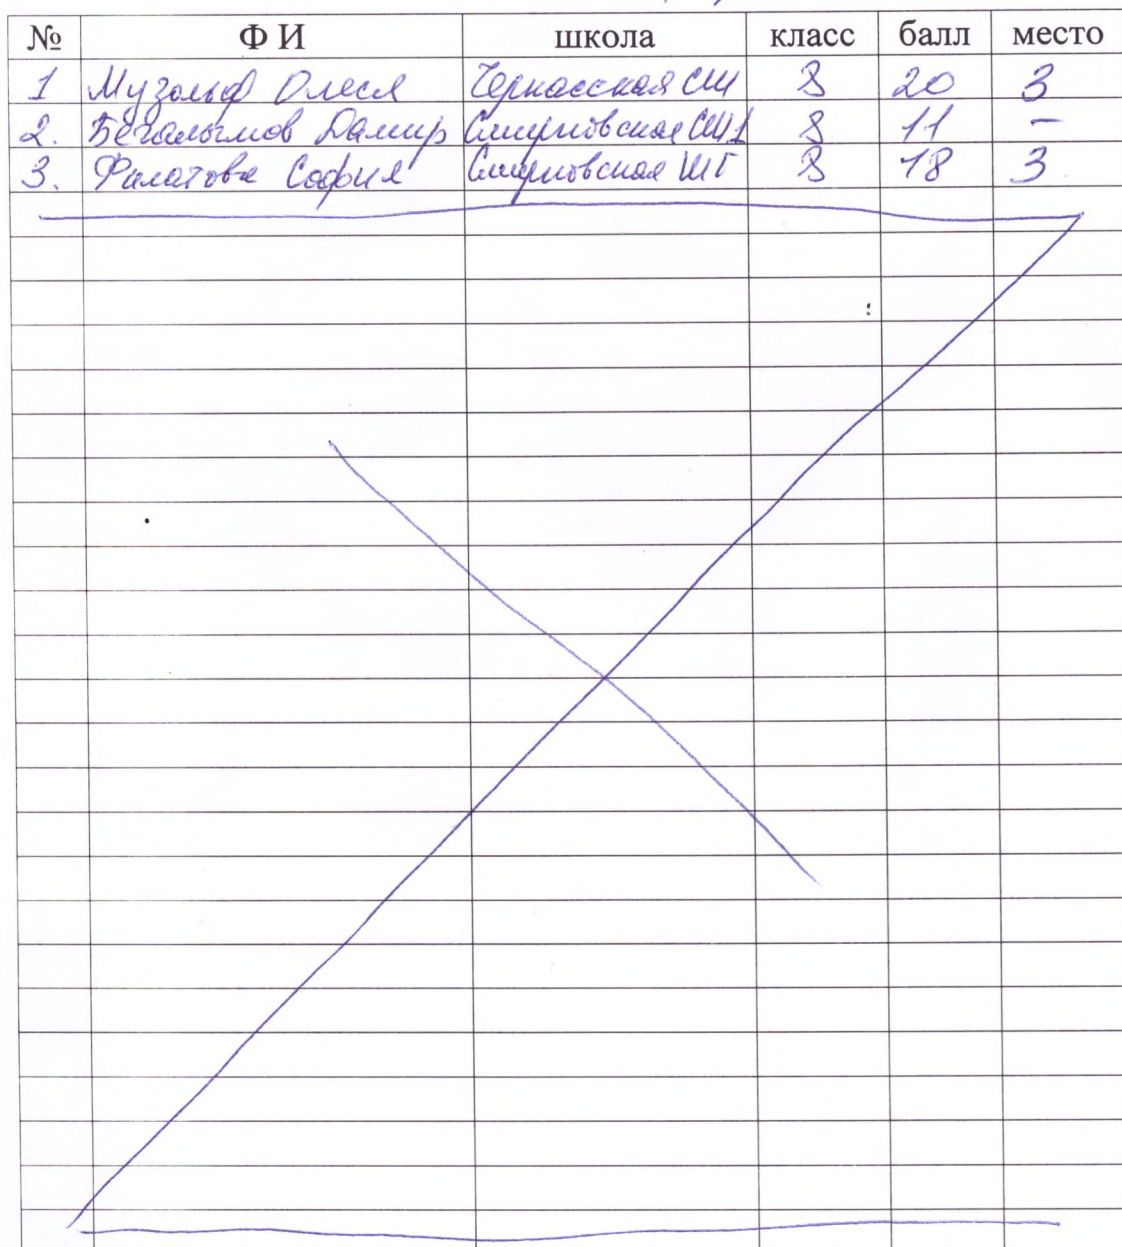 № Ф И школа класс балл место
1 Музольф Олеся Черкасская СШ 8 20 3
2. Бегалымов Дамир Смирновская СШ1 8 11 -
3. Филатова София Смирновская ШГ 8 18 3